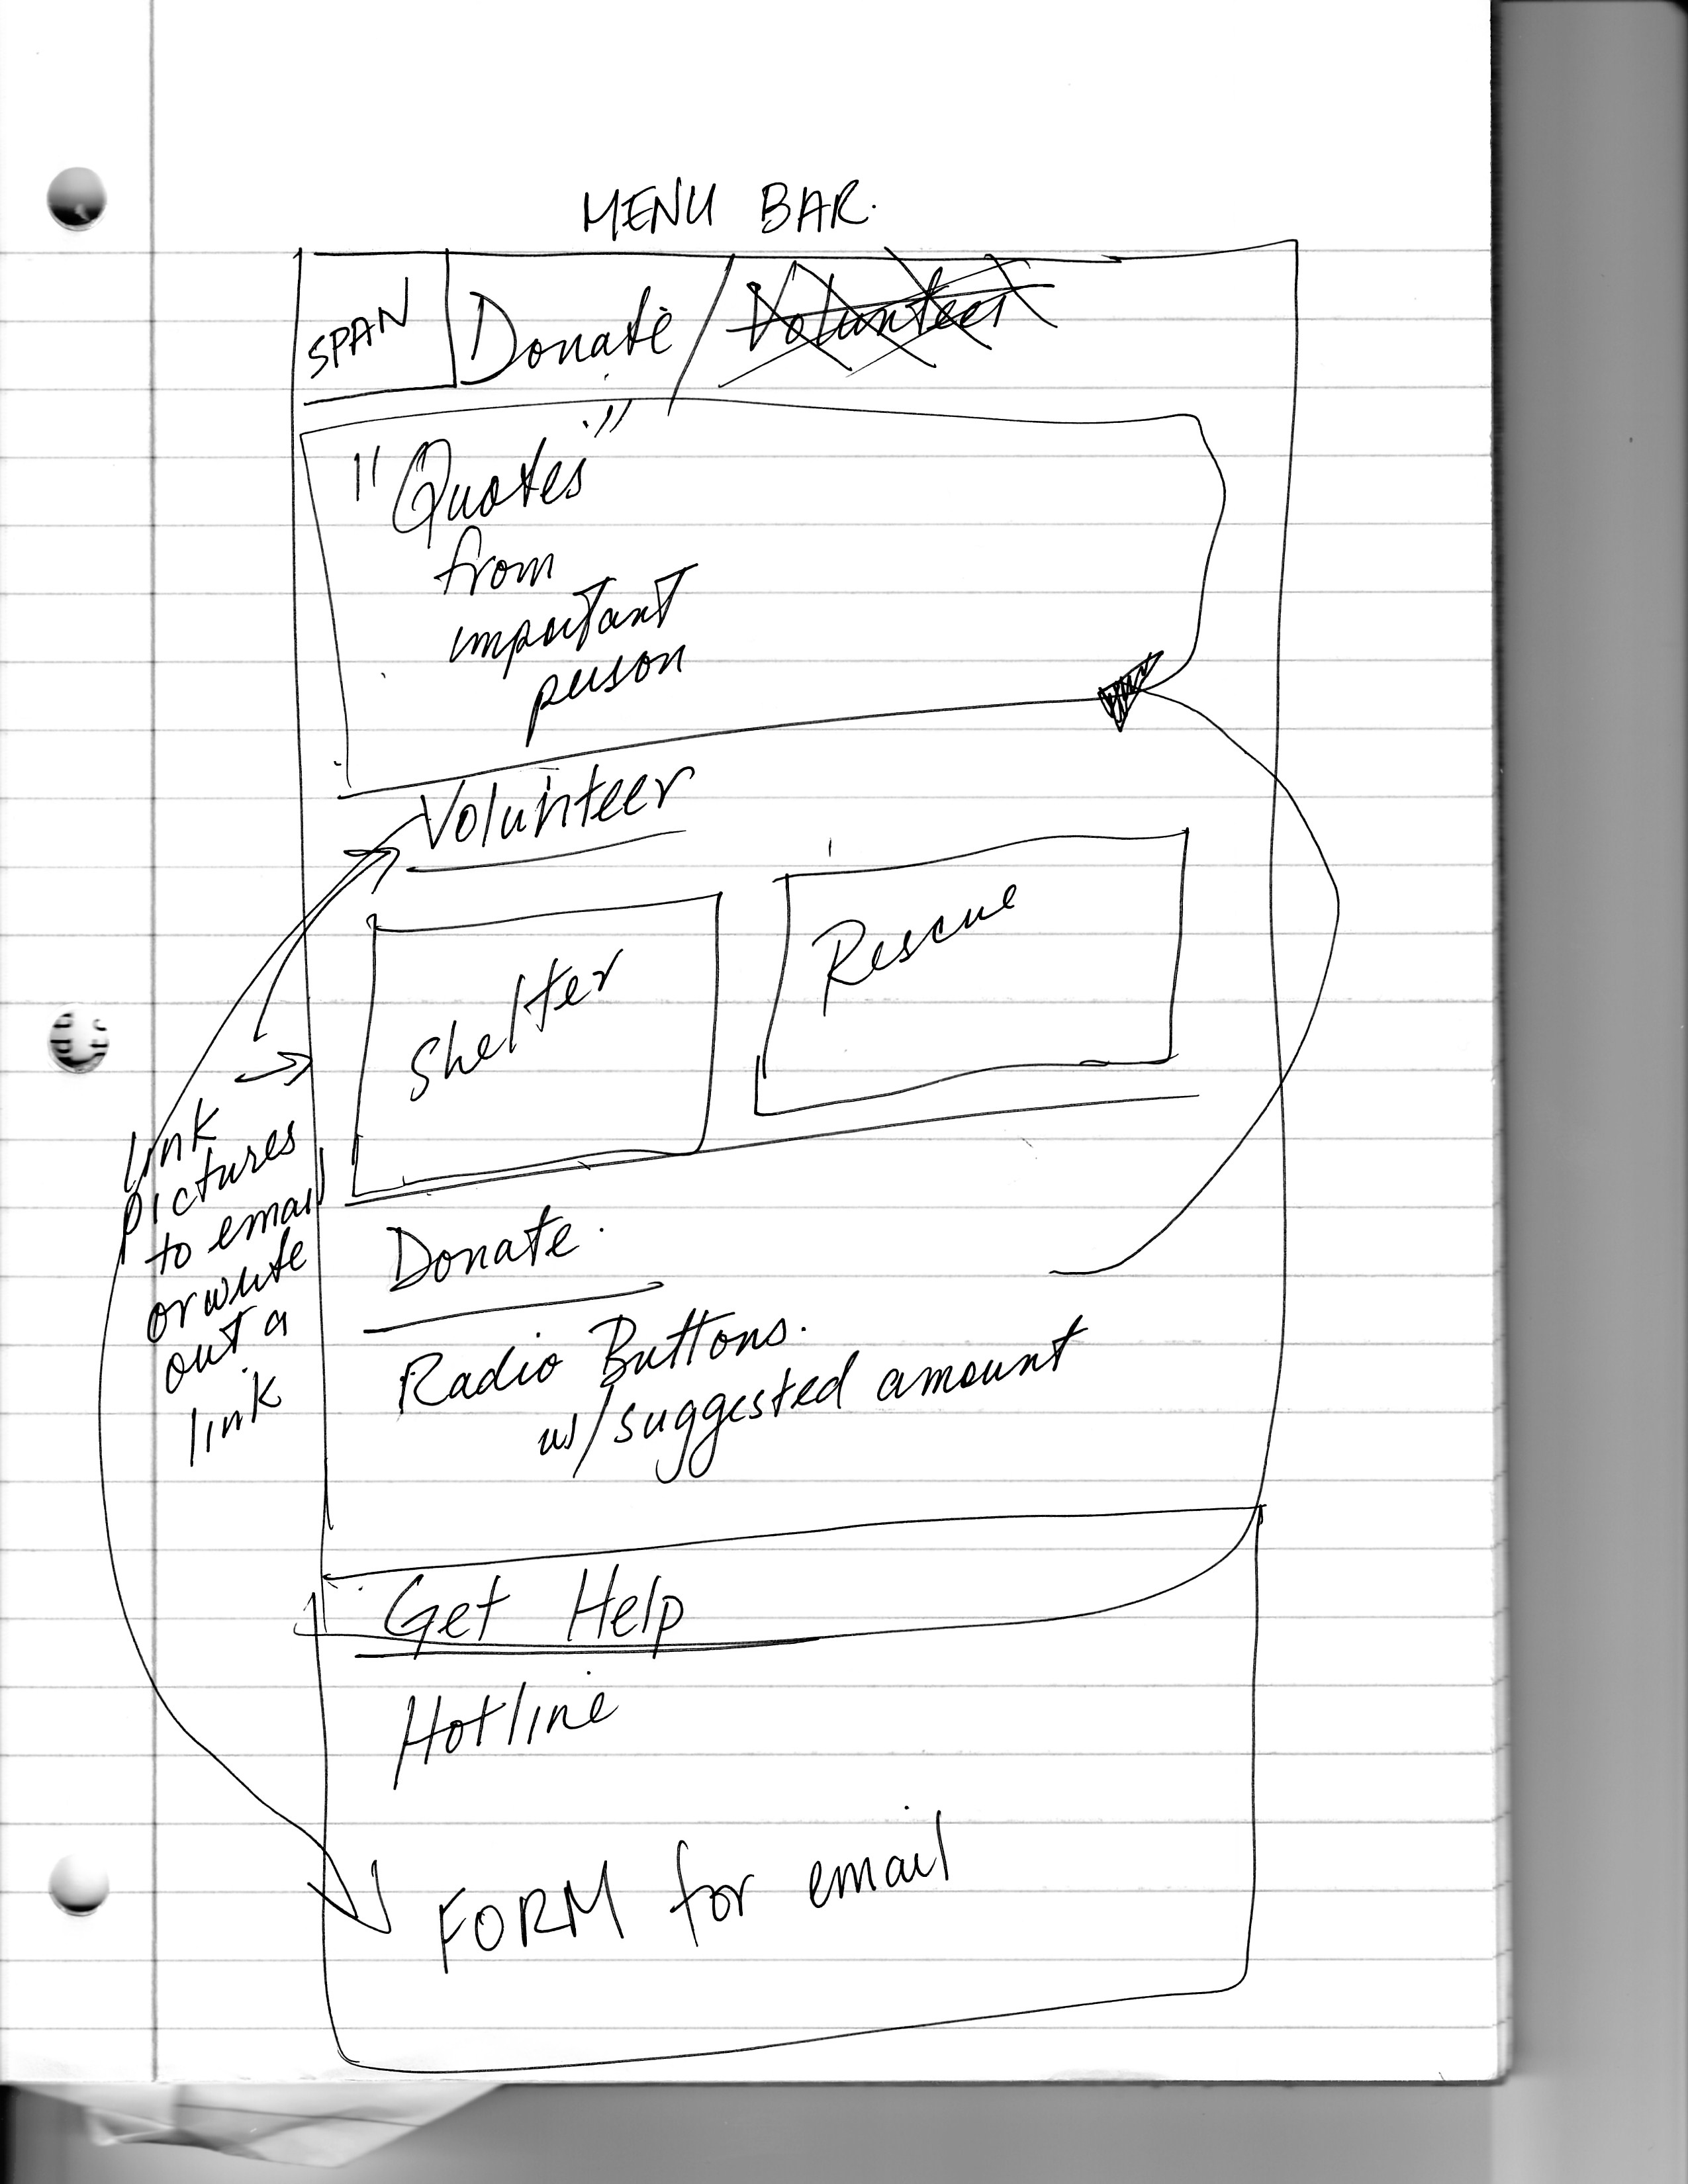 MENU BAR.
SPAN Donate / Volunteer
"Quotes"
from
important
person
Volunteer
Shelter
Rescue
link
pictures
to email
or write
out a
link
Donate.
Radio Buttons.
w/suggested amount
Get Help
Hotline
FORM for email